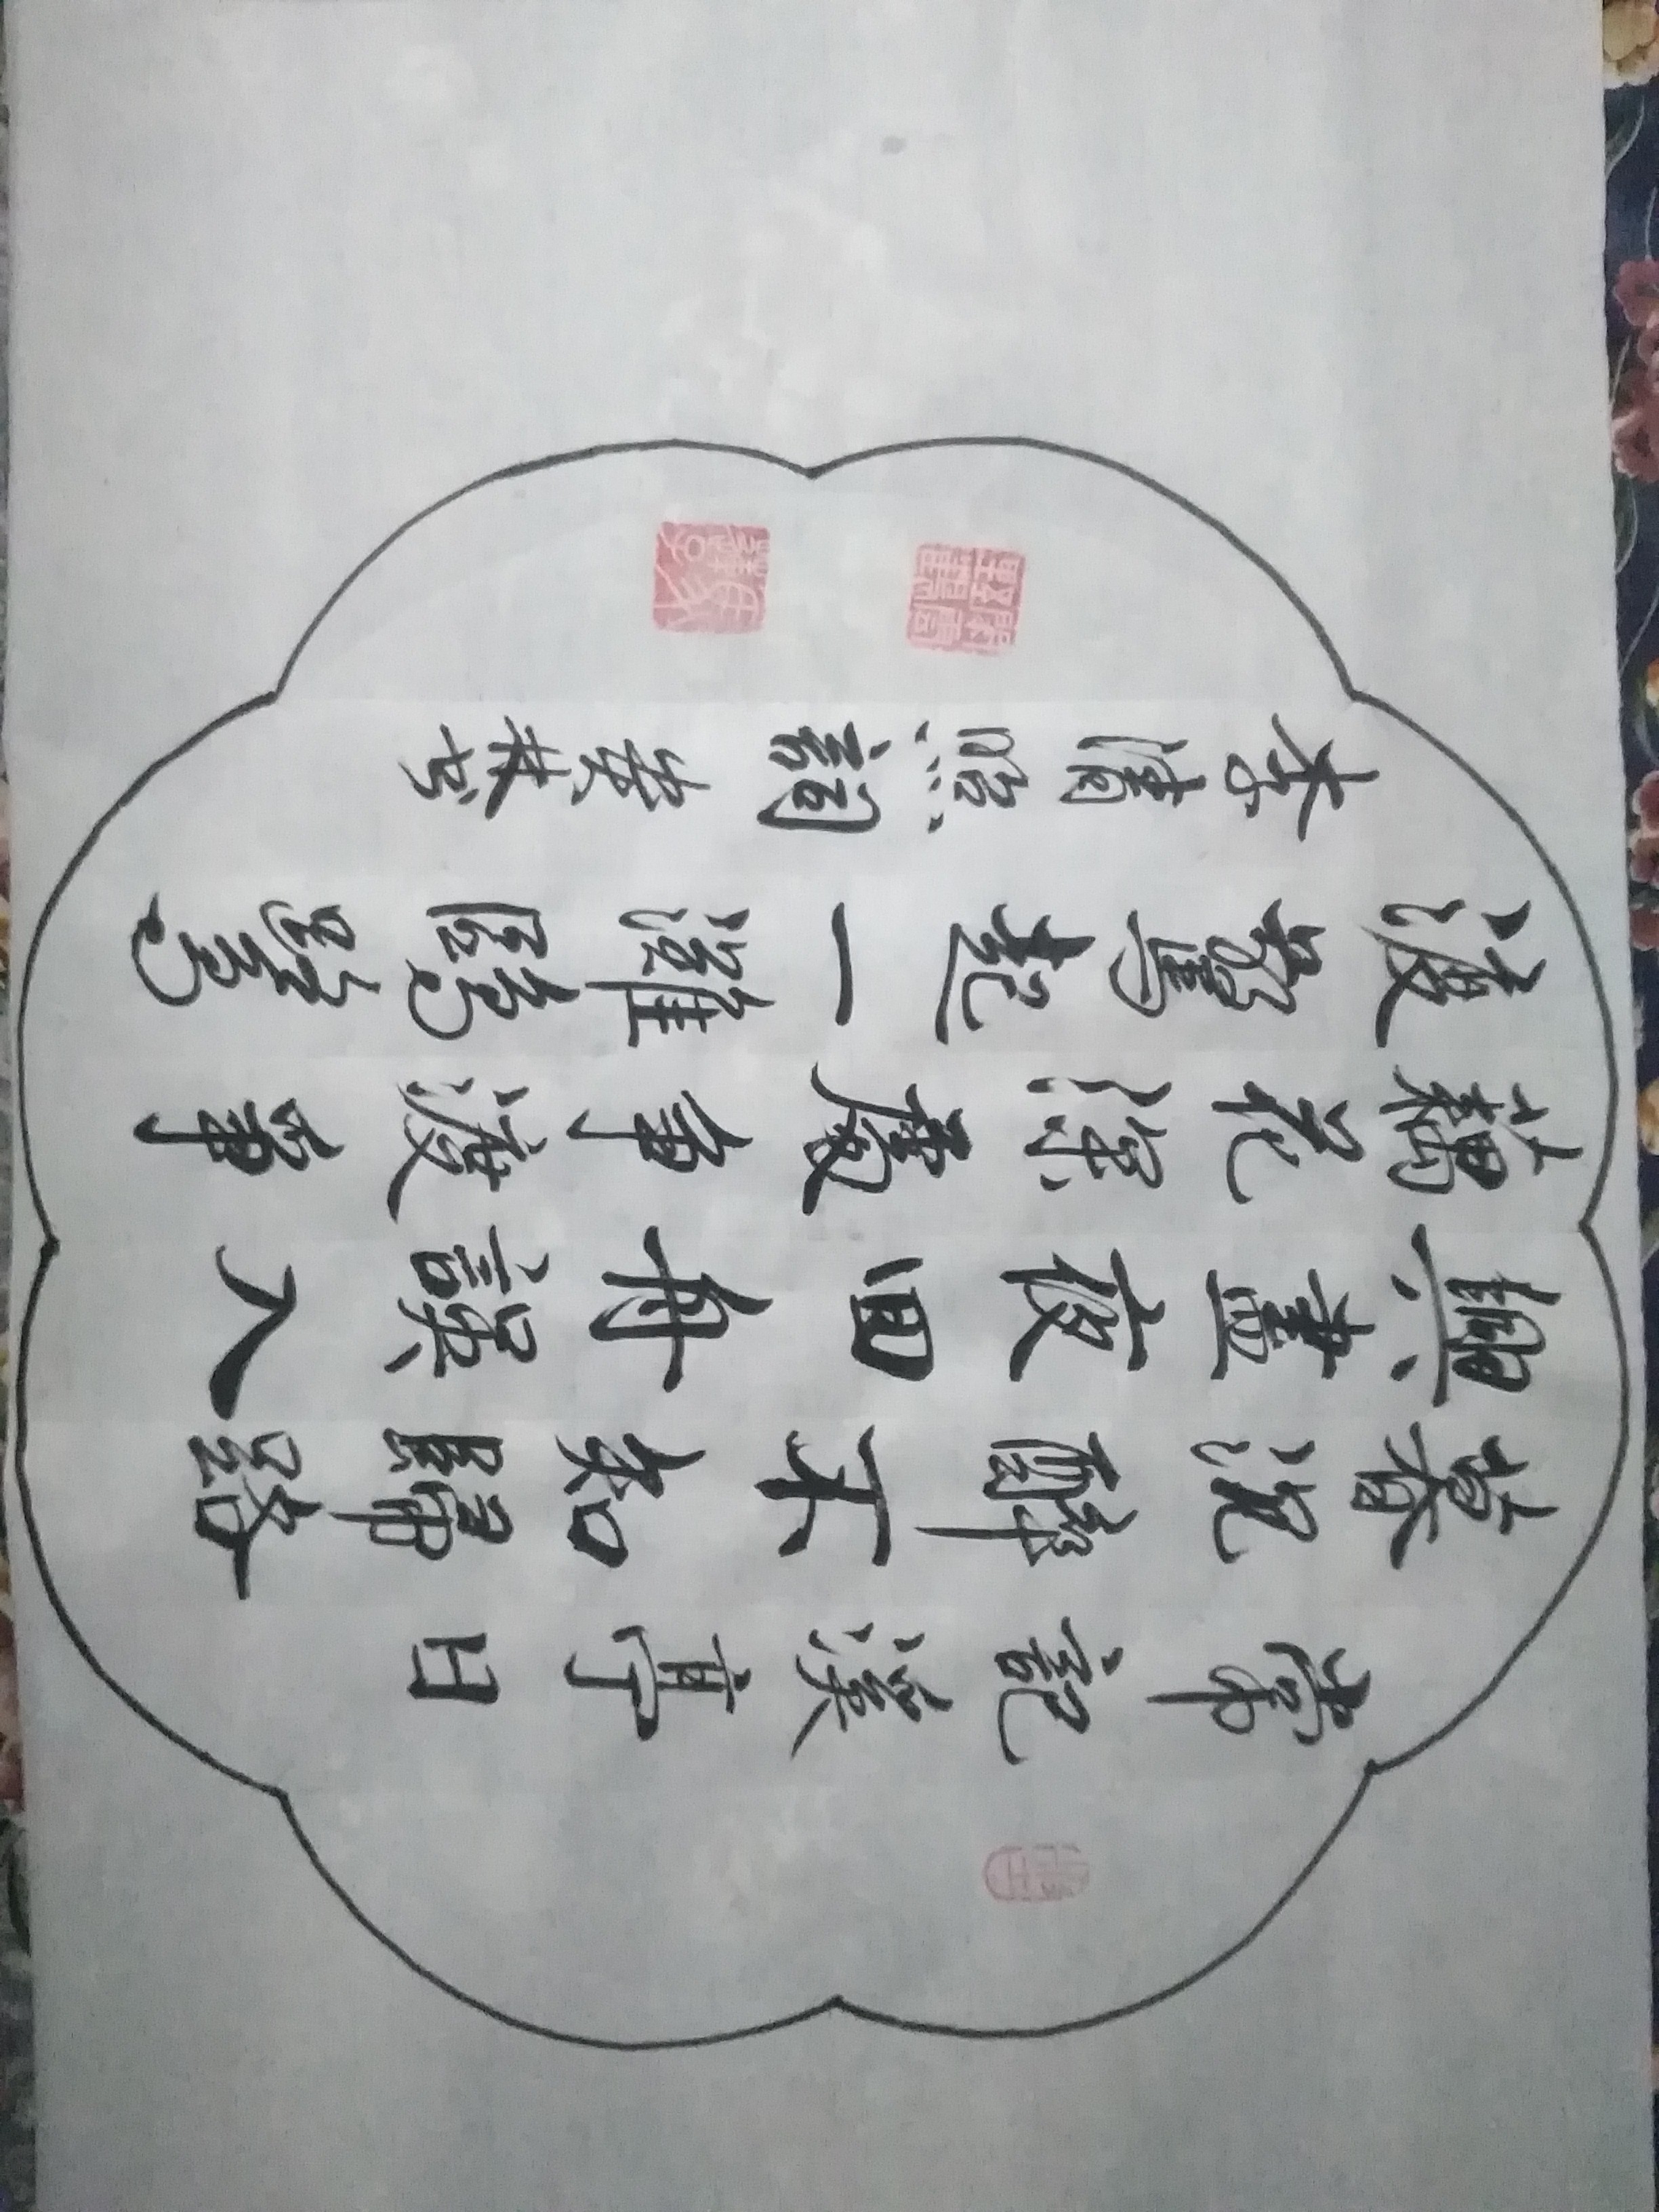 常記溪亭日
暮沉醉不知歸路
興盡夜回舟誤入
藕花深處爭渡爭
渡驚起一灘鷗鷺
李清照詞